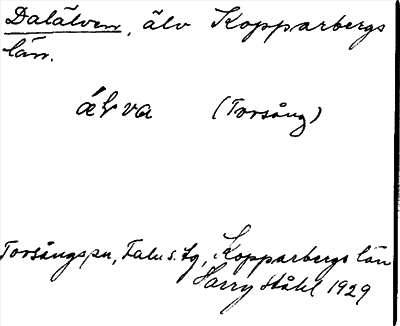 Dalälven, älv Kopparbergs
län.
älva (Torsång)
Torsångs sn, Falu s. tg, Kopparbergs län
Harry Ståhl 1929